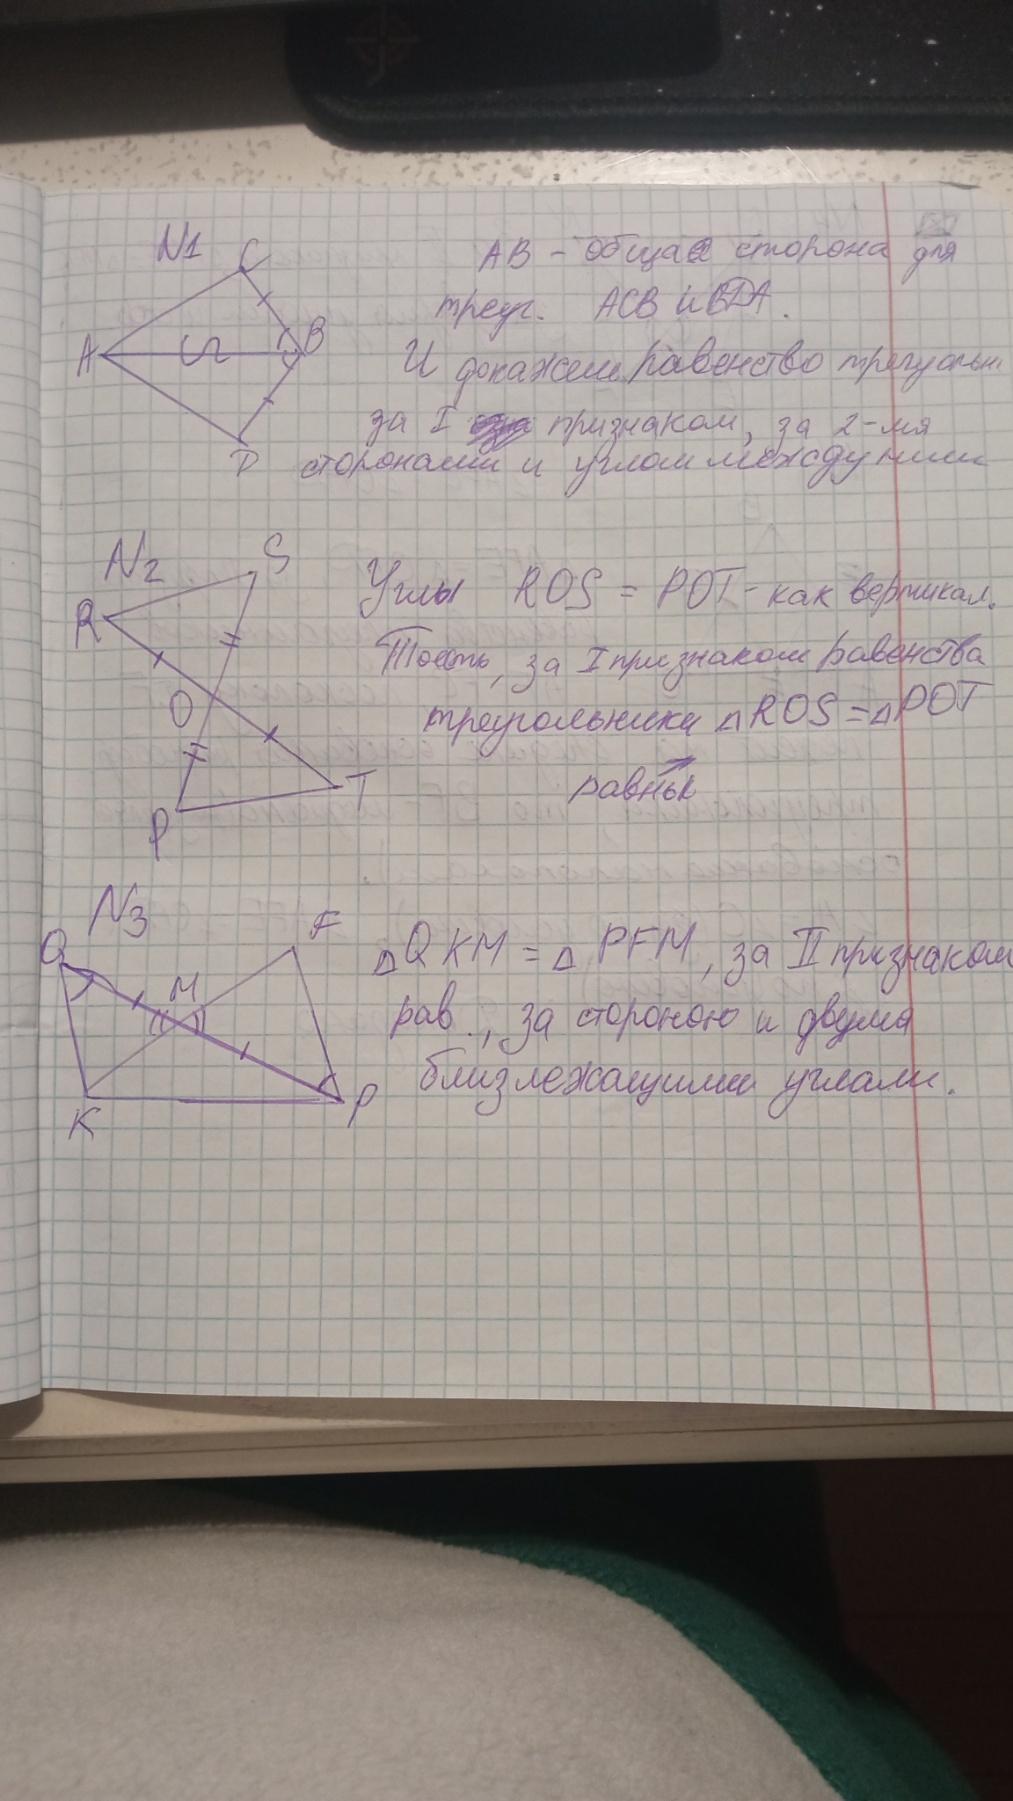 N1
C
A
B
D
АВ - общая сторона для
треуг. АСВ и ВДА.
И докажем равенство треугольн.
за I признаком, за 2-мя
сторонами и углом между ними
N2
S
R
O
P
T
Углы ROS = POT - как вертикал.
Тоесть, за I признаком равенства
треугольники △ROS = △POT
равны
N3
Q
F
M
K
P
△QKM = △PFM, за II признаком
рав., за стороною и двума
близлежащими углами.